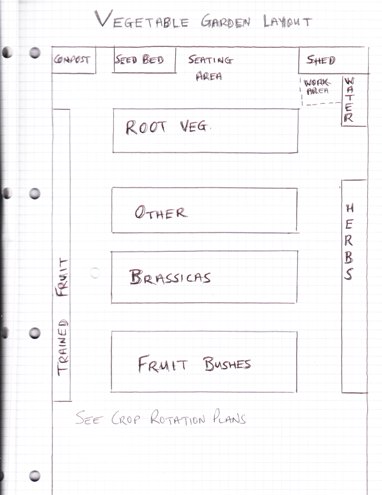 VEGETABLE GARDEN LAYOUT
COMPOST
SEED BED
SEATING
AREA
SHED
WORK-
AREA
WATER
ROOT VEG.
OTHER
HERBS
BRASSICAS
TRAINED FRUIT
FRUIT BUSHES
SEE CROP ROTATION PLANS